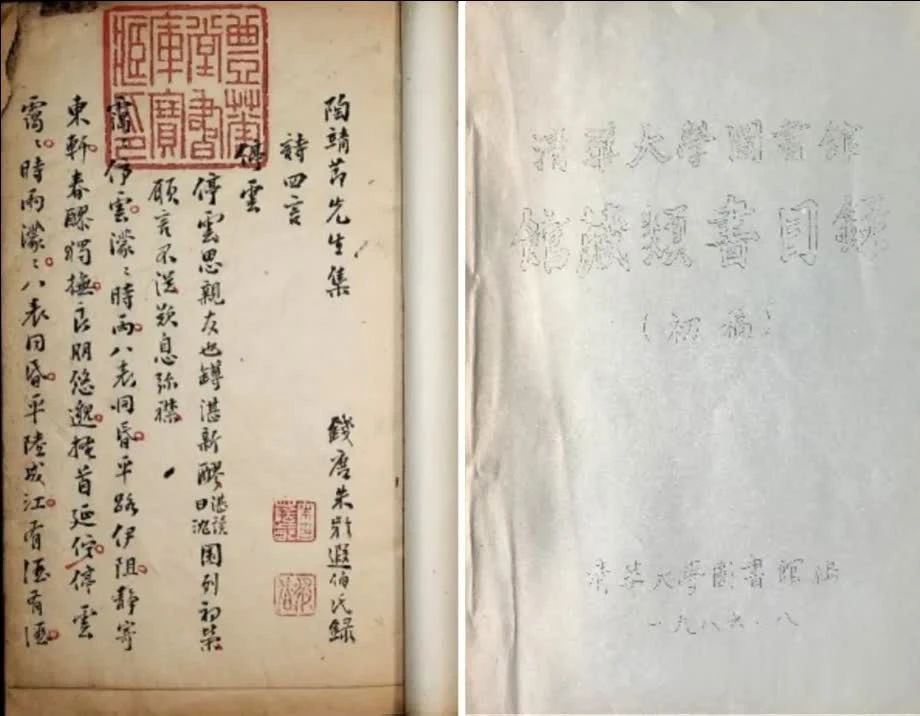 豐華堂書庫寶藏印
陶靖節先生集
錢唐朱遐伯氏錄
詩四言
停雲
停雲思親友也罇湛新醪湛讀曰沈園列初榮
願言不從歎息弥襟
靄〻停雲濛〻時雨八表同昏平路伊阻靜寄
東軒春醪獨撫良朋悠邈搔首延佇停雲
靄〻時雨濛〻八表同昏平陸成江有酒有酒
清華大學圖書館
館藏類書目錄
(初稿)
清华大學圖書館编
一九八六·八